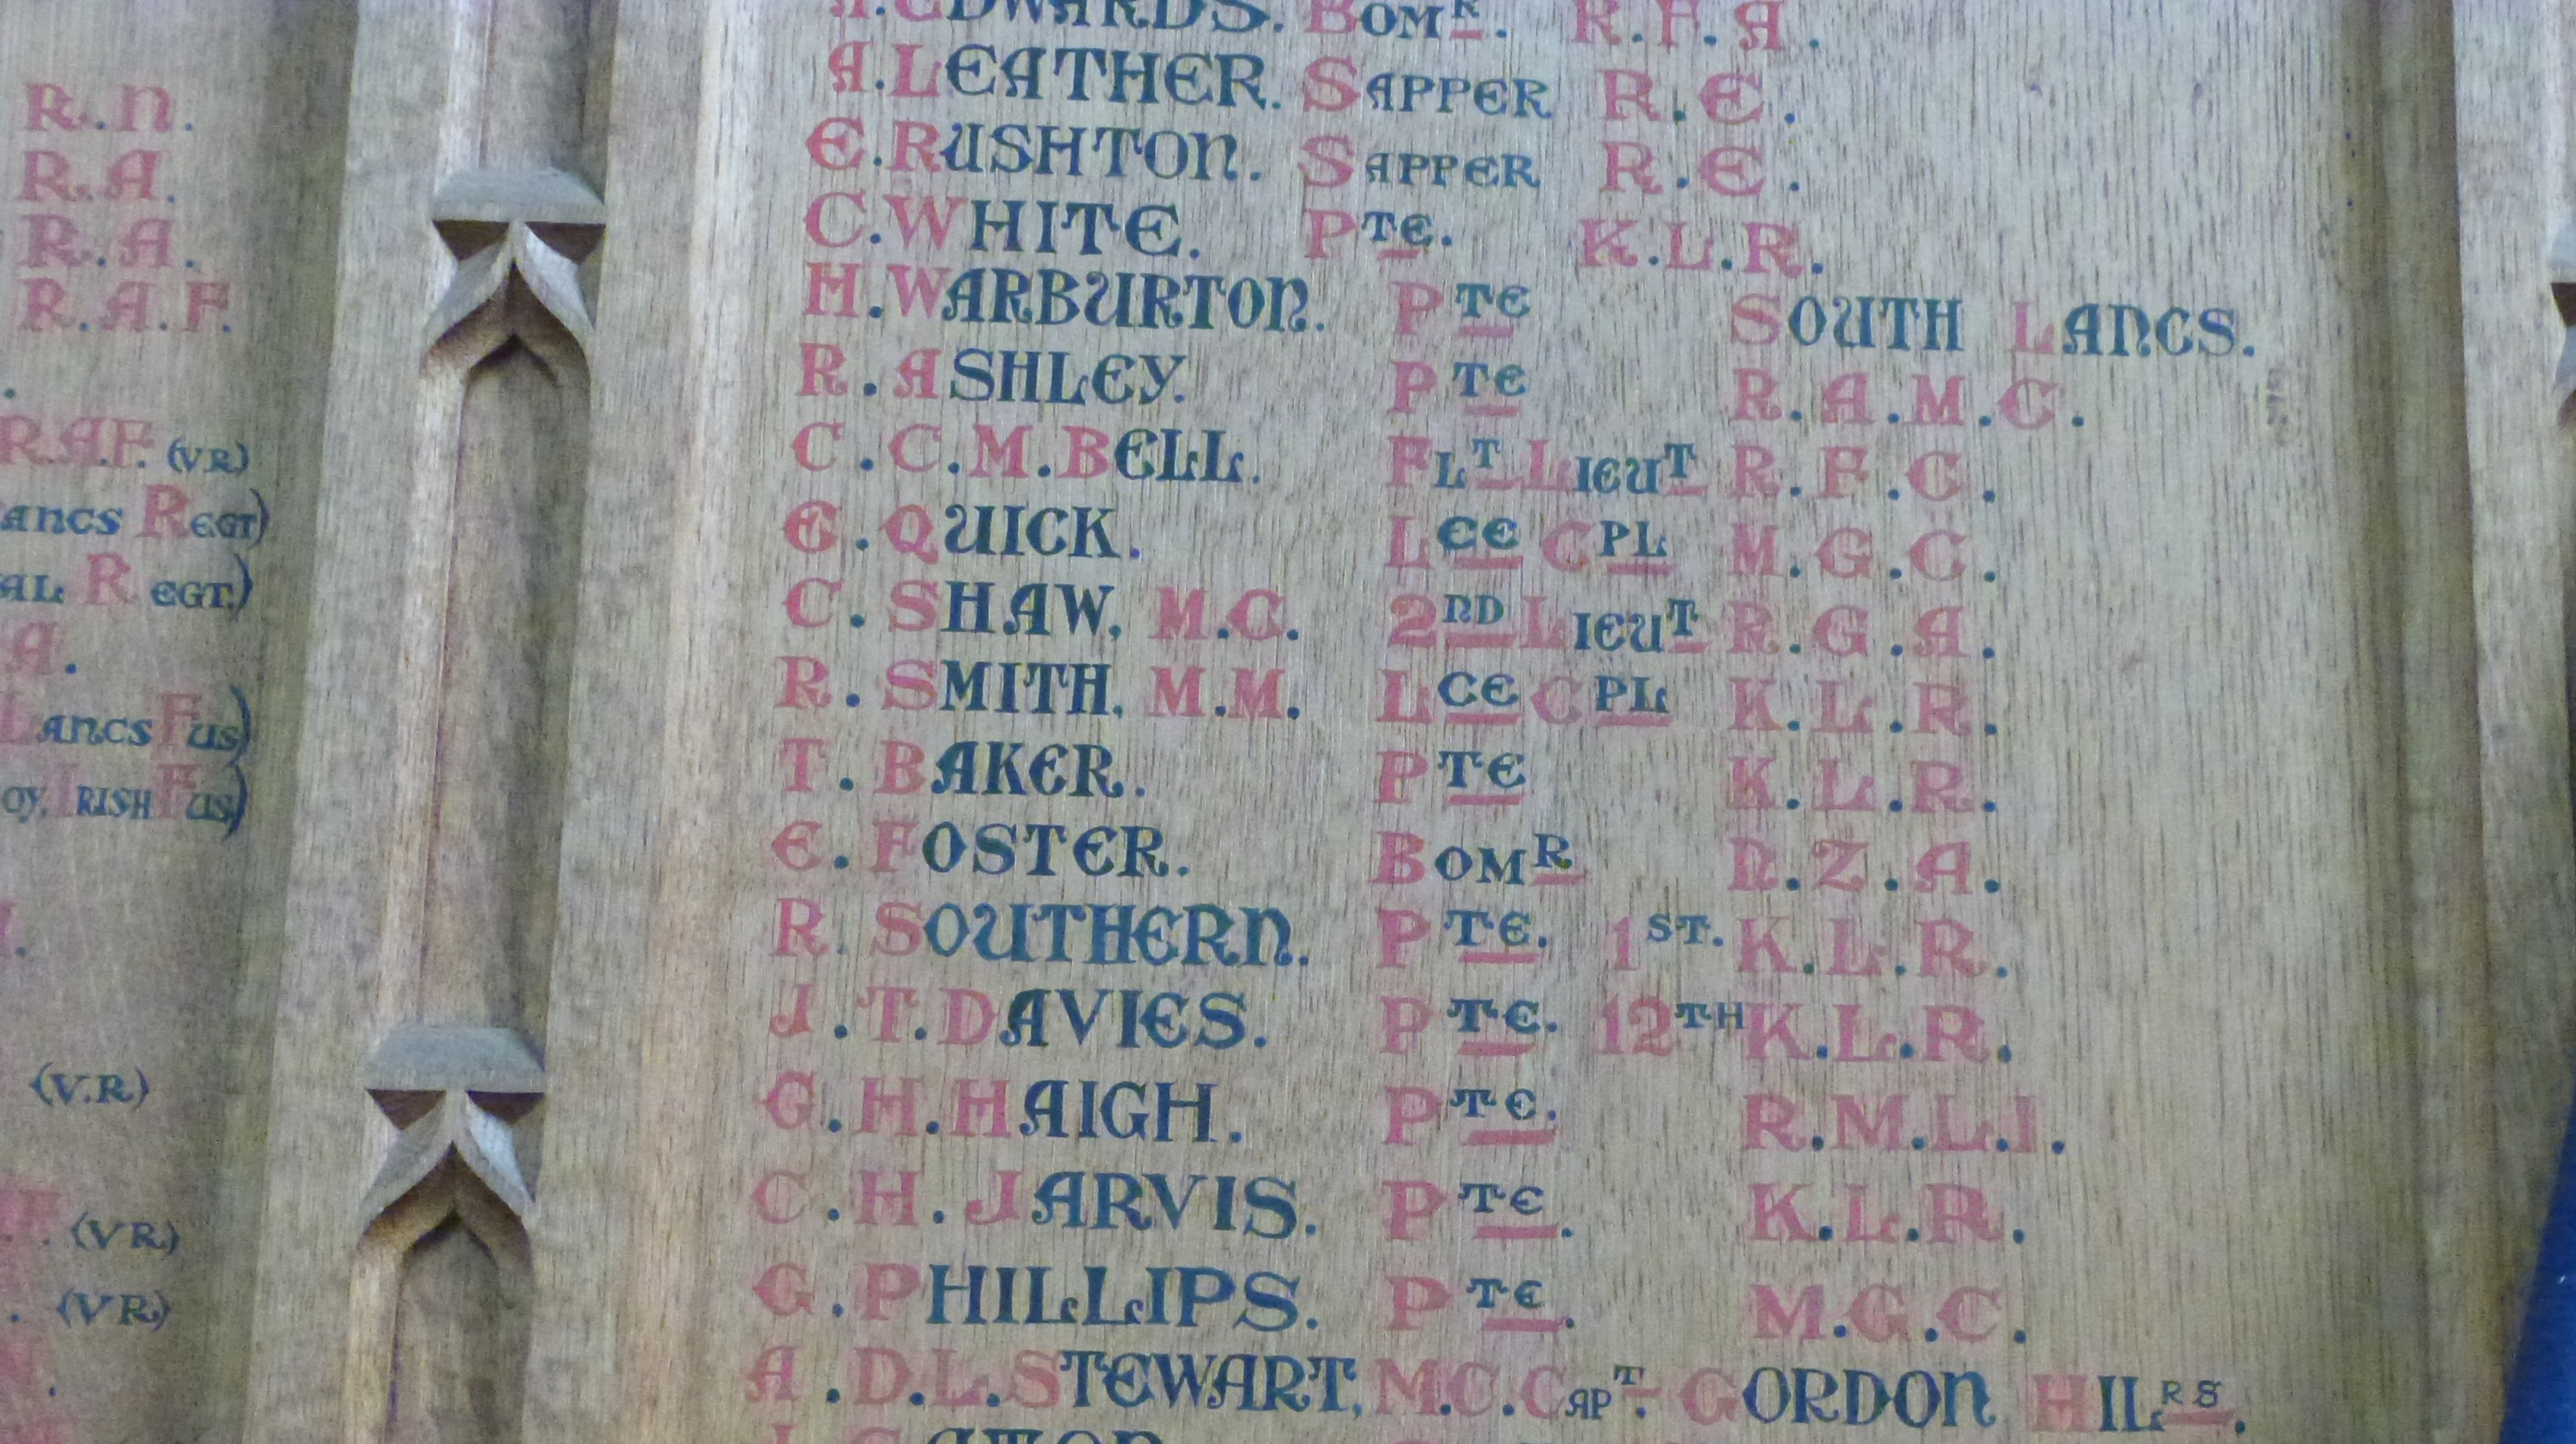 R.N.
R.A.
R.A.
R.A.F.
R.A.F. (VR)
ancs Regt)
al Regt.)
A.
Lancs Fus)
oy. Irish Fus)
(V.R)
(VR)
(VR)
A. EDWARDS. BOMR. R.F.A.
A. LEATHER. SAPPER R.E.
E. RUSHTON. SAPPER R.E.
C. WHITE. PTE. K.L.R.
H. WARBURTON. PTE SOUTH LANCS.
R. ASHLEY. PTE R.A.M.C.
C.C.M. BELL. FLT LIEUT R.F.C.
E. QUICK. LCE CPL M.G.C.
C. SHAW, M.C. 2ND LIEUT R.G.A.
R. SMITH, M.M. LCE CPL K.L.R.
T. BAKER. PTE K.L.R.
E. FOSTER. BOMR N.Z.A.
R. SOUTHERN. PTE. 1ST. K.L.R.
J.T. DAVIES. PTE. 12TH K.L.R.
G.H. HAIGH. PTE. R.M.L.I.
C.H. JARVIS. PTE. K.L.R.
G. PHILLIPS. PTE. M.G.C.
A.D.L. STEWART, M.C. CAPT. GORDON HILRS.